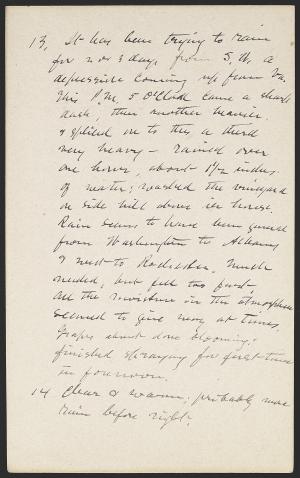 13, It has been trying to rain
for 2 or 3 days from S.W. a
depression coming up from Va.
This P.M. 5 O'Clock came a sharp
dash, then another heavier,
& on to this a third
very heavy — rained over
one hour, about 1 1/2 inches
of water; washed the vineyard
on side hill above the house.
Rain seems to have been general
from Washington to Albany
& west to Rochester. Much
needed, but fell too fast.
All the moisture in the atmosphere
seemed to give way at times.
Grapes about done blooming,
finished spraying for first time
in forenoon.
14 Clear & warm; probably more
rain before night.